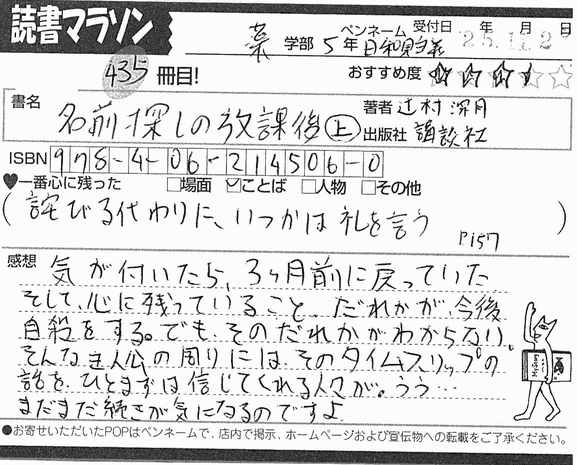 読書マラソン
ペンネーム 受付日 年 月 日
薬 学部 5年 日和見主義 25.11.2
435 冊目! おすすめ度 ★★★☆☆
書名 名前探しの放課後 上
著者 辻村深月
出版社 講談社
ISBN 978-4-06-214506-0
♥一番心に残った □場面 ☑ことば □人物 □その他
(詫びる代わりに、いつかは礼を言う P157)
感想 気が付いたら、3ヶ月前に戻っていた
そして、心に残っていること、だれかが、今後
自殺をする。でも、そのだれかがわからない。
そんな主人公の周りには、そのタイムスリップの
話を、ひとまずは信じてくれる人々が。うう…
まだまだ続きが気になるのですよ
●お寄せいただいたPOPはペンネームで、店内で掲示、ホームページおよび宣伝物への転載をご了承ください。